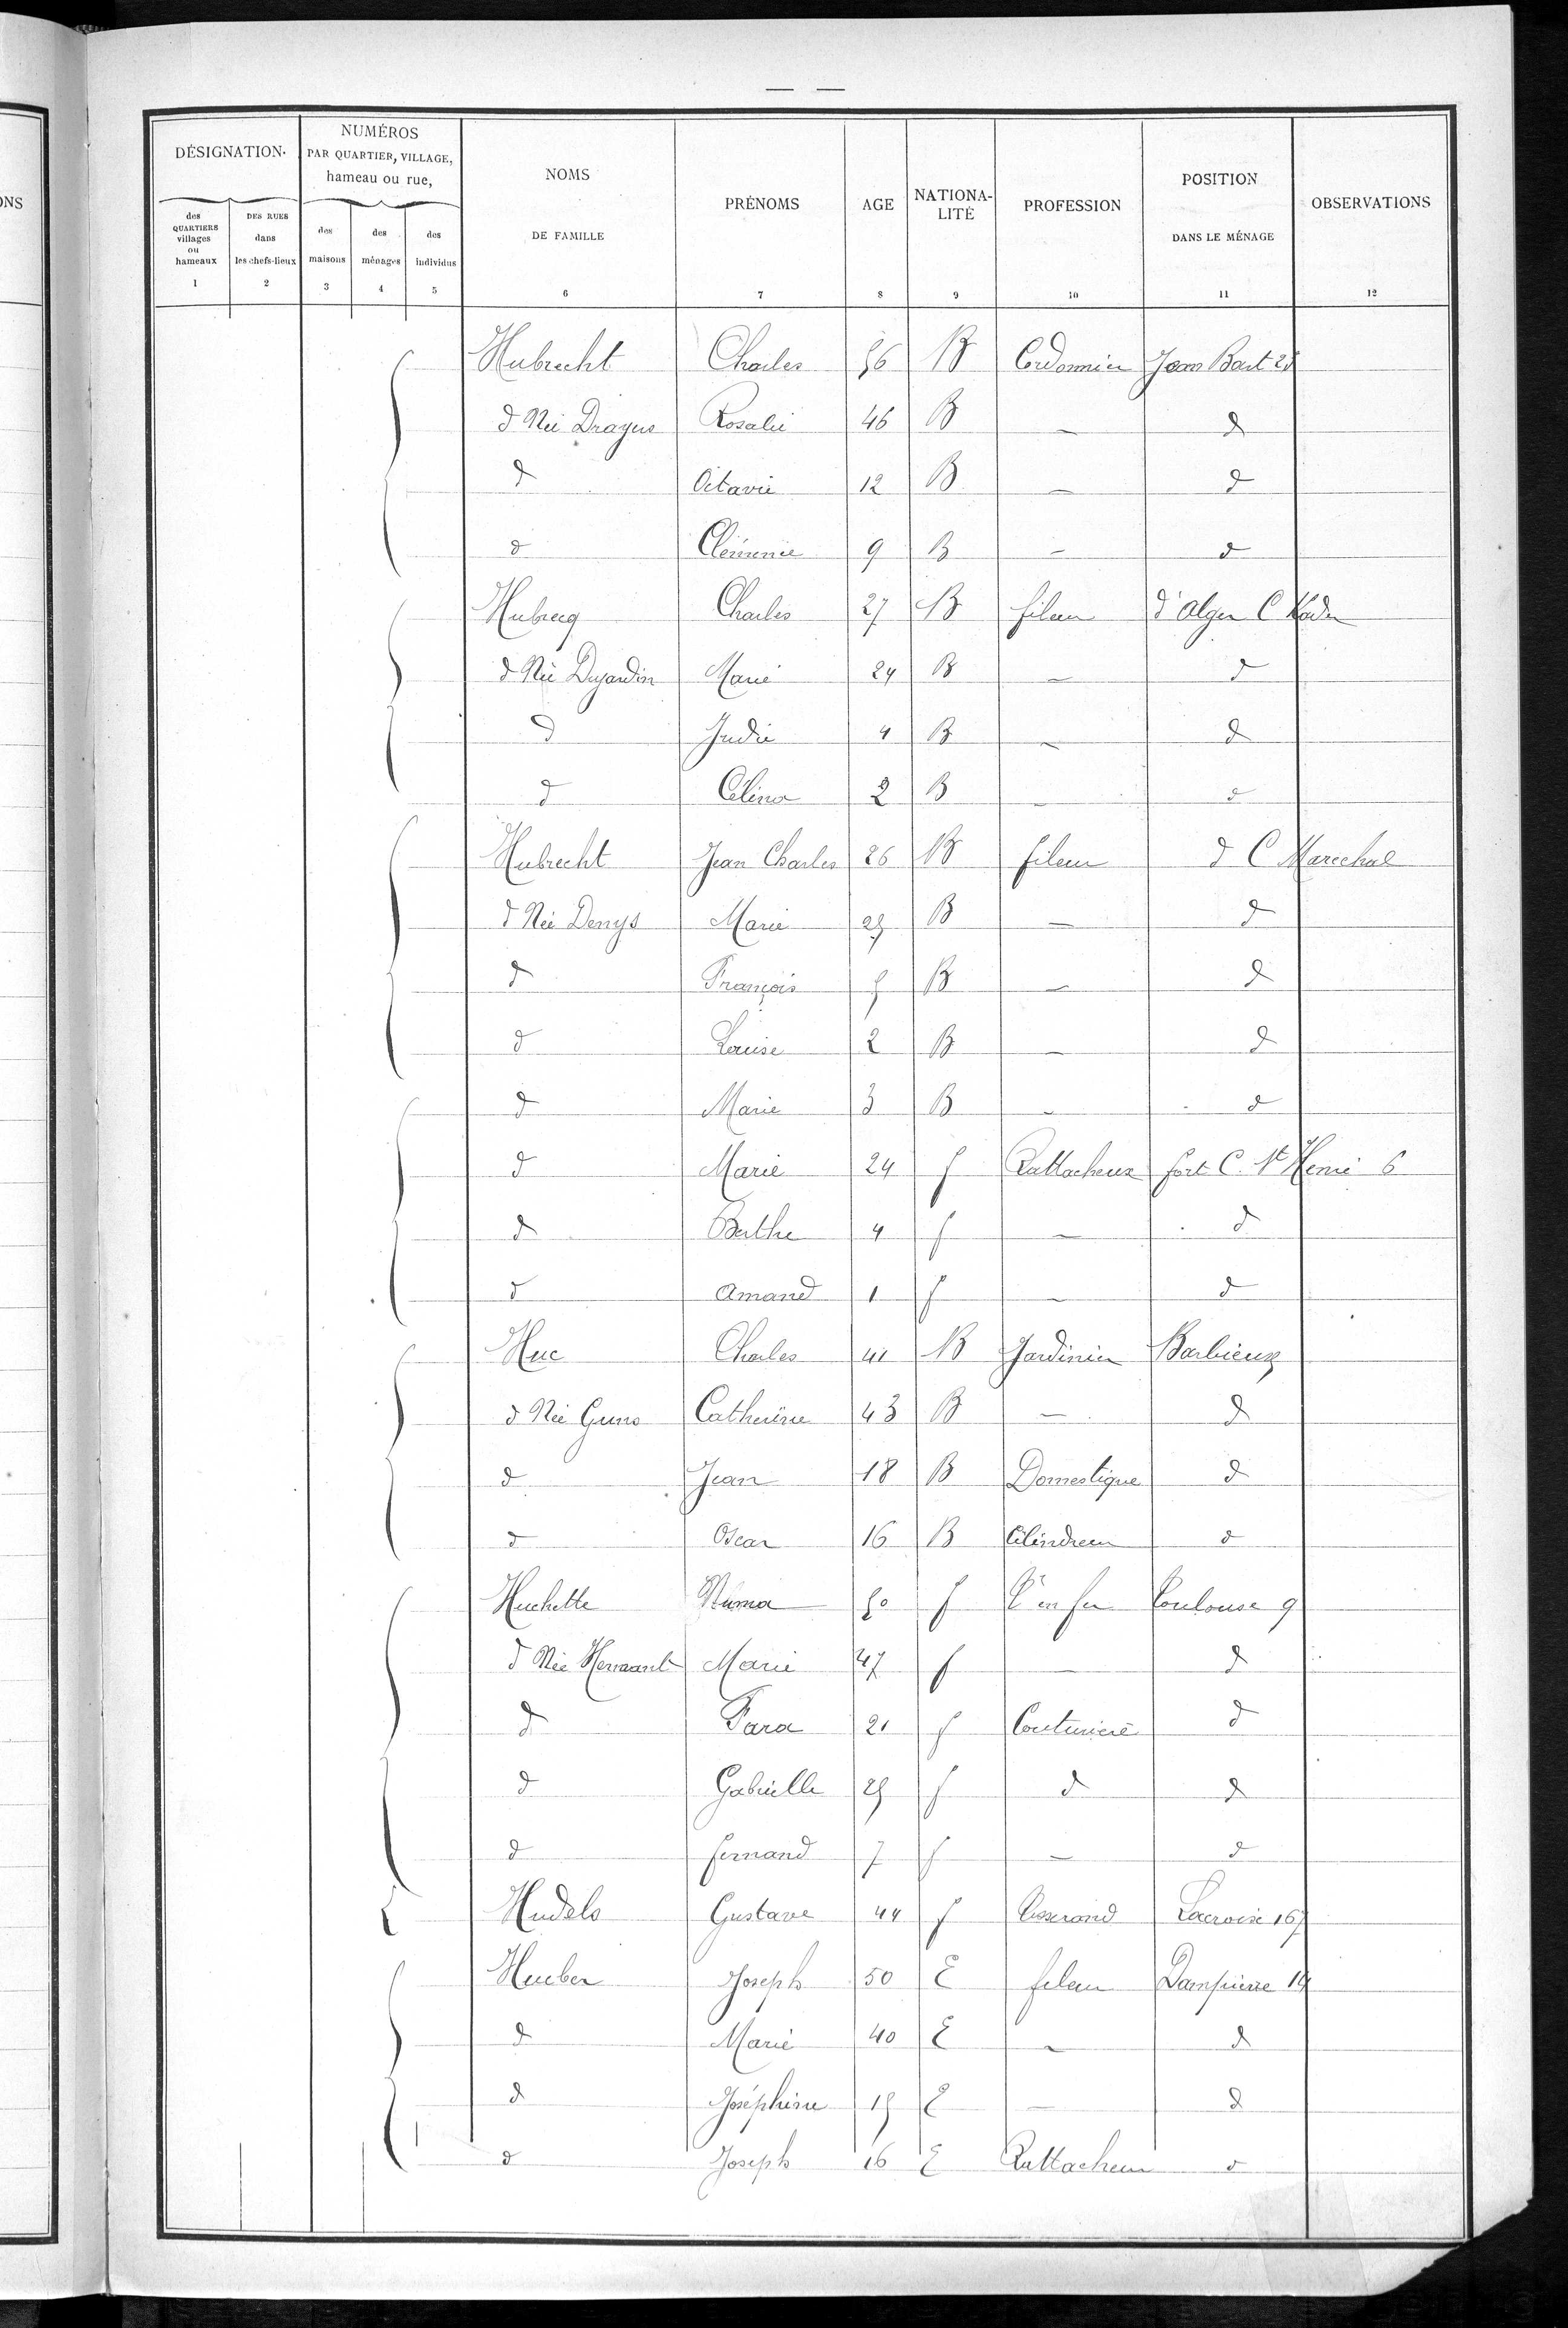 — —
DÉSIGNATION.
NUMÉROS PAR QUARTIER, VILLAGE, hameau ou rue,
NOMS DE FAMILLE
PRÉNOMS
AGE
NATIONA-LITÉ
PROFESSION
POSITION DANS LE MÉNAGE
OBSERVATIONS
des QUARTIERS villages ou hameaux
DES RUES dans les chefs-lieux
des maisons
des ménages
des individus
1 2 3 4 5 6 7 8 9 10 11 12
Hubrecht Charles 56 B Cordonnier Jean Bart 25
d Née Drayus Rosalie 46 B — d
d Octavie 12 B — d
d Clémence 9 B — d
Hubrecq Charles 27 B fileur d'Alger C Kader
d Née Dujardin Marie 24 B — d
d Judie 4 B — d
d Célina 2 B — d
Hubrecht Jean Charles 26 B fileur d C Marechal
d Née Denys Marie 25 B — d
d François 5 B — d
d Louise 2 B — d
d Marie 3 B — d
d Marie 24 f Rattacheur fort C. St Henri 6
d Berthe 4 f — d
d Amand 1 f — d
Huc Charles 41 B Jardinier Barbieux
d Née Guns Catherine 43 B — d
d Jean 18 B Domestique d
d Oscar 16 B Cilindreur d
Huchette Numa 50 f en fer Toulouse 9
d Née Hennant Marie 47 f — d
d Fara 21 f Couturière d
d Gabrielle 25 f d d
d fernand 7 f — d
Hudels Gustave 44 f tisserand Lacroix 167
Hueber Joseph 50 E fileur Dampierre 14
d Marie 40 E — d
d Joséphine 15 E — d
d Joseph 16 E Rattacheur d